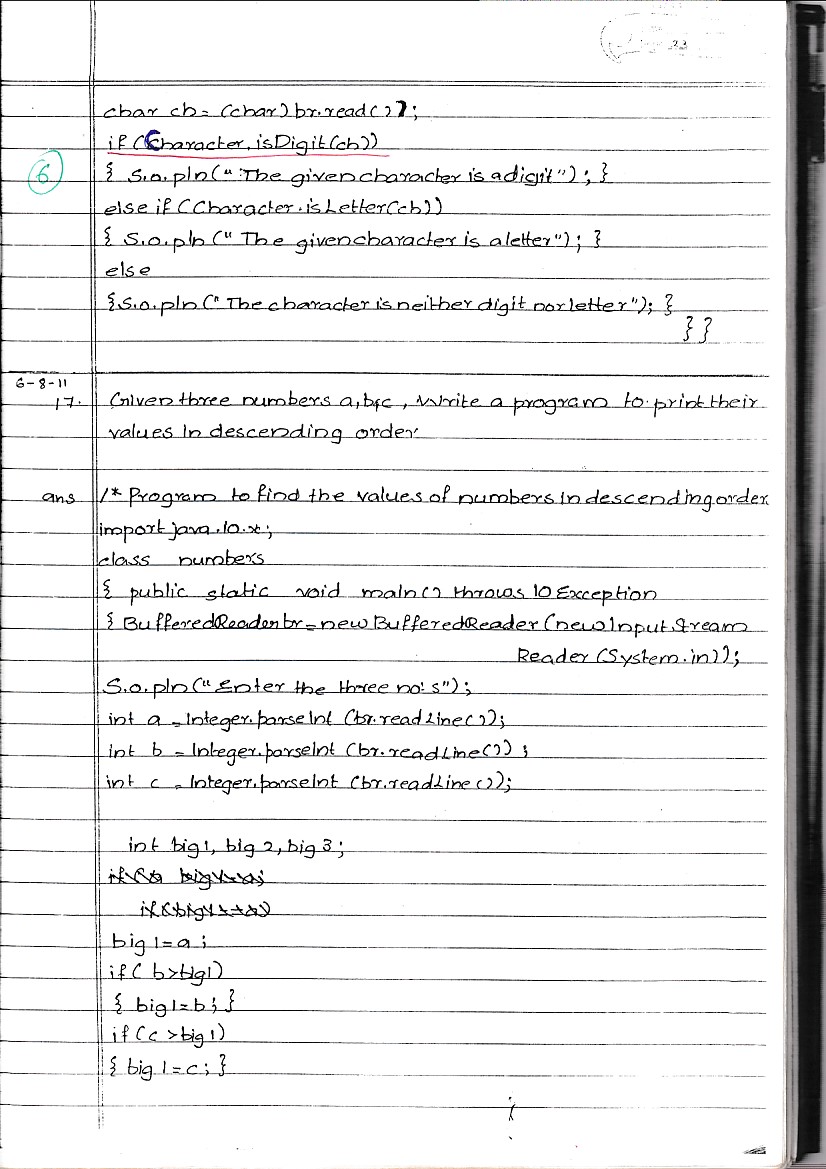 char ch = (char) br.read();
if (Character.isDigit(ch))
6
{ S.o.pln(" The given character is a digit"); }
else if (Character.isLetter(ch))
{ S.o.pln (" The given character is a letter"); }
else
{S.o.pln (" The character is neither digit nor letter"); }
} }
6-8-11
17. Given three numbers a, b & c, Write a program to print their
values in descending order
ans /* Program to find the values of numbers in descending order
import java.io.*;
class numbers
{ public static void main() throws IO Exception
{ BufferedReader br = new BufferedReader (new Input Stream
Reader (System.in));
S.o.pln(" Enter the three no's");
int a = Integer.parseInt (br.readLine());
int b = Integer.parseInt (br.readLine());
int c = Integer.parseInt (br.readLine());
int big1, big 2, big 3;
big 1 = a ;
if( b>big1)
{ big1=b; }
if (c >big1)
{ big 1 = c; }